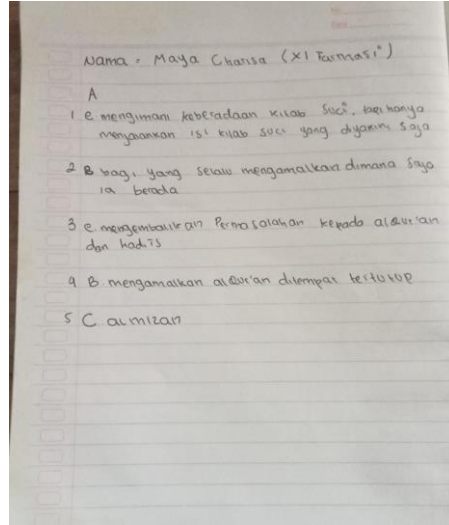 Nama : Maya Charisa (XI Farmasi)
A
1 e mengimani keberadaan kitab suci, tapi hanya
menjalankan isi kitab suci yang diyakini saja
2 B bagi yang selalu mengamalkan dimana saja
ia berada
3 e. mengembalikan Permasalahan kepada alQur'an
dan hadis
4 B. mengamalkan alQur'an ditempat tertutup
5 C almizan